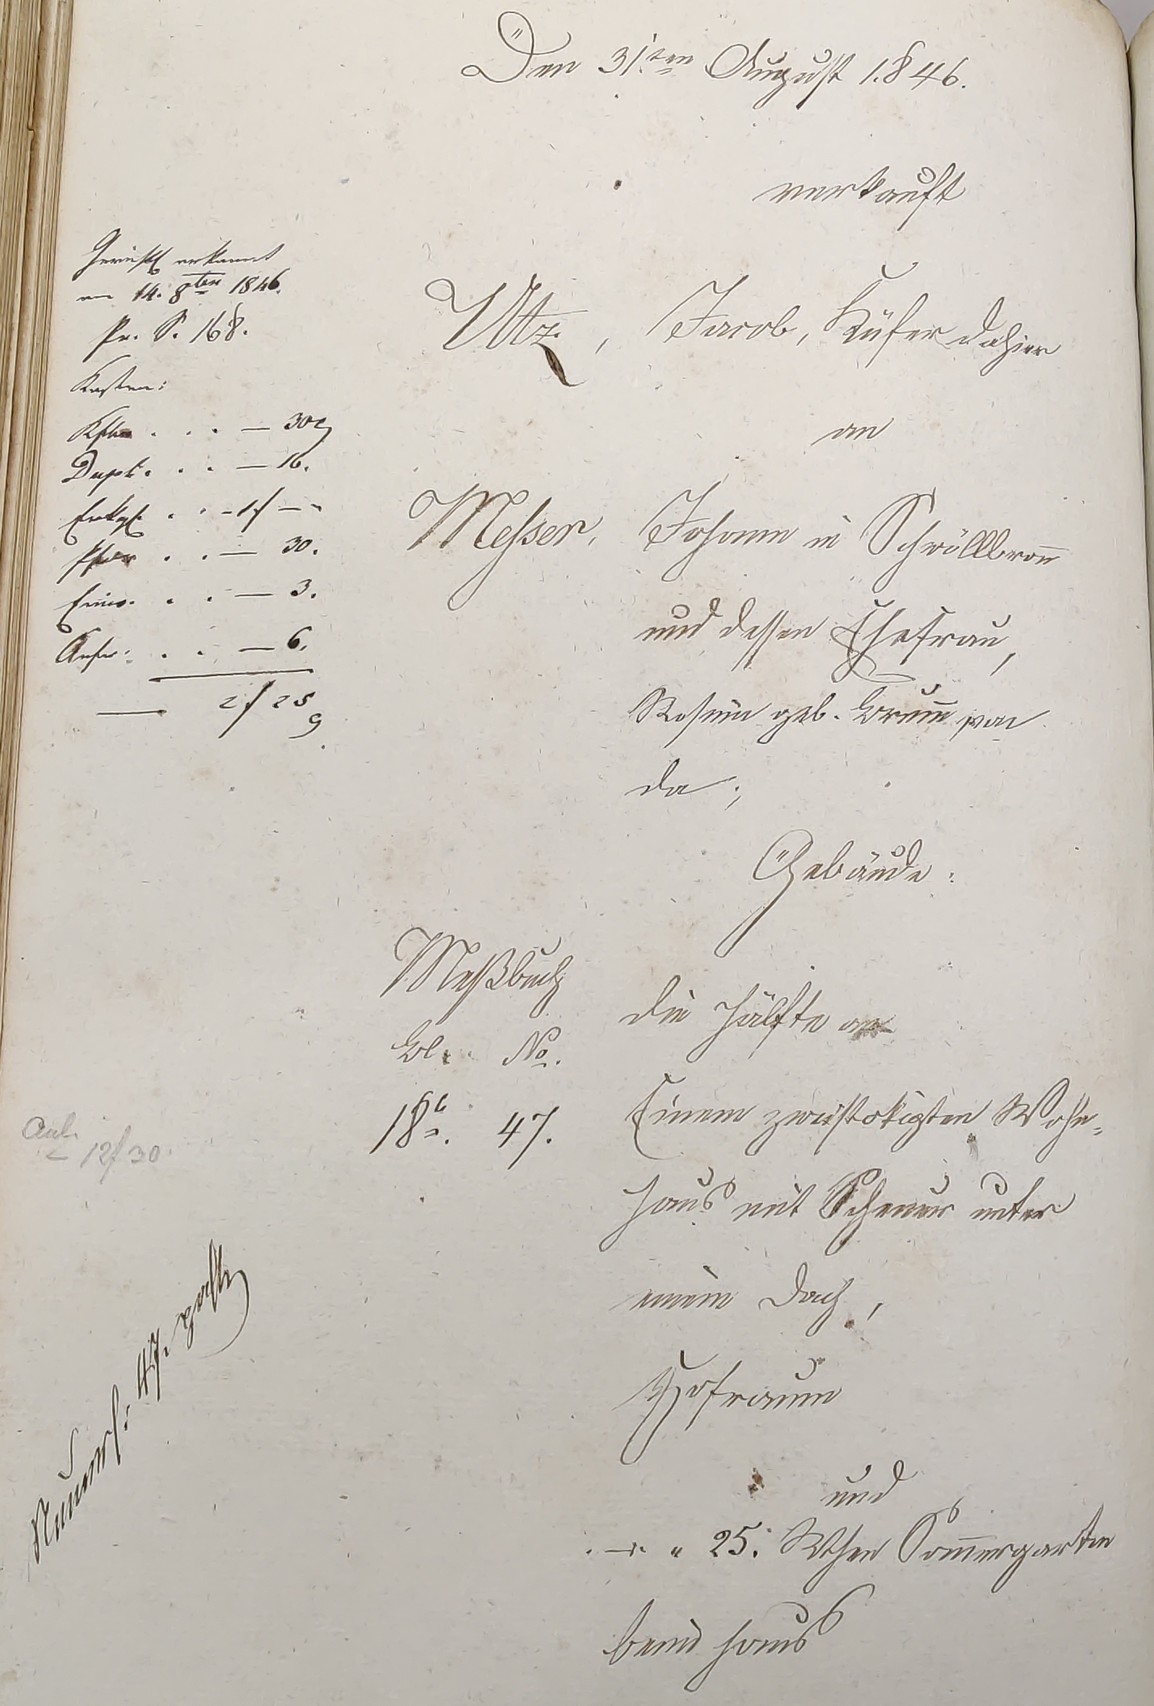 Den 31ten August 1846.
verkauft
Gerichtl erkannt
am 14. 8ten 1846.
Pr. S. 168.
Kosten:
. . . — 30 x
Dupl. . . — 16.
. . — 1 f — -
. . — 30.
. . — 3.
. . — 6.
— 2 f 25
Utz, Jacob, Küfer dahier
an
Messer, Johann in Schöllbronn
und dessen Ehefrau,
Rosina geb. von
da;
Gebäude:
Meßbuch
Bl. No.
18b. 47.
die Hälfte an
Einem zweistokigten Wohn-
haus mit Scheuer unter
einem Dach,
Hofraum
und
. — . " 25. Rthen Sommergarten
beim Haus
12 f 30.
47.